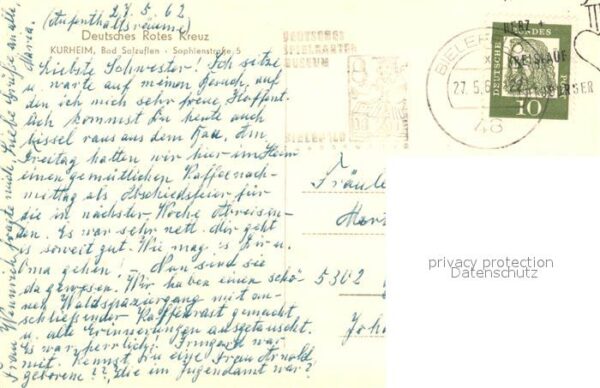 27.5.62
(Aufenthaltsräume)
Deutsches Rotes Kreuz
KURHEIM, Bad Salzuflen · Sophienstraße 5
Liebste Schwester! Ich sitze
u. warte auf meinen Besuch, auf
den ich mich sehr freue. Hoffent-
lich kommst Du heute auch
bissel raus aus dem Bau. Am
Freitag hatten wir hier im Heim
einen gemütlichen Kaffeenach-
mittag als Abschiedsfeier für
die in nächster Woche Abreisen-
den. Es war sehr nett. Mir geht
es soweit gut. Wie mag's u.
Oma gehen! – Nun sind sie
da gewesen. Wir haben einen schö-
nen Waldspaziergang mit an-
schließender Kaffeerast gemacht
u. alte Erinnerungen ausgetauscht.
Es war herrlich! Irmgard war
mit. Kennst Du eine Frau Arnold,
geborene ??, die im Jugendamt war?
Frau Hennrich fragte nach. Liebe Grüße an alle,
Maria.
DEUTSCHES
SPIELKARTEN
MUSEUM
BIELEFELD
27.5.6
48
HERZ +
KREISLAUF
DEUTSCHE
BUNDESPOST
10
Fräulein
5302
privacy protection
Datenschutz